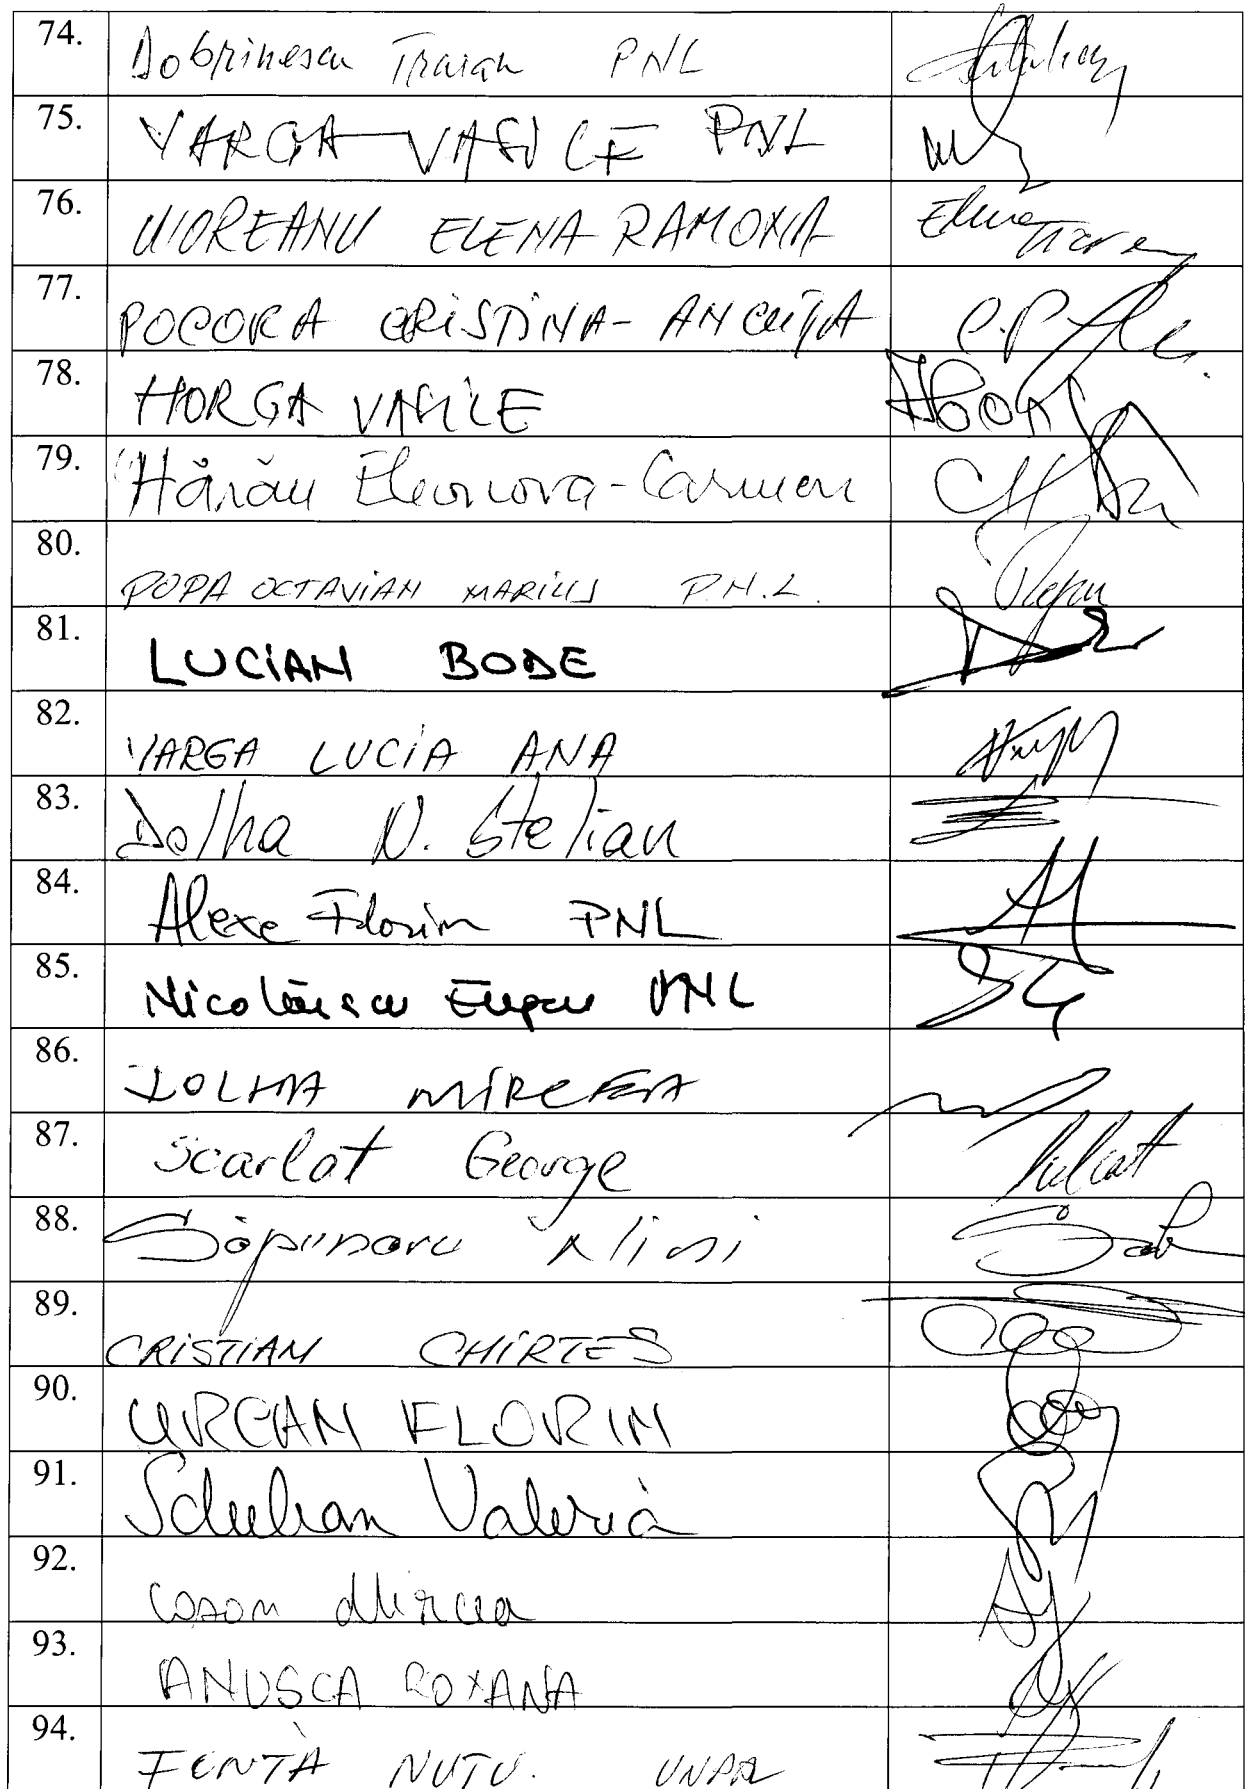 74. Dobrinescu Traian PNL
75. VARGA VASILE PNL
76. UIOREANU ELENA RAMONA
77. POCORA CRISTINA-ANCUȚA
78. HORGA VASILE
79. Hărău Eleonora-Carmen
80. POPA OCTAVIAN MARIUS P.N.L.
81. LUCIAN BODE
82. VARGA LUCIA ANA
83. Dolha N. Stelian
84. Alexe Florin PNL
85. Nicolăescu Eugen PNL
86. TOLHA MIRCEA
87. Scarlat George
88. Săpunaru Nini
89. CRISTIAN CHIRTEȘ
90. URCAN FLORIN
91. Schelean Valeria
92. Coșon Mircea
93. ANUSCA ROXANA
94. FENTĂ NUȚU. UNPR